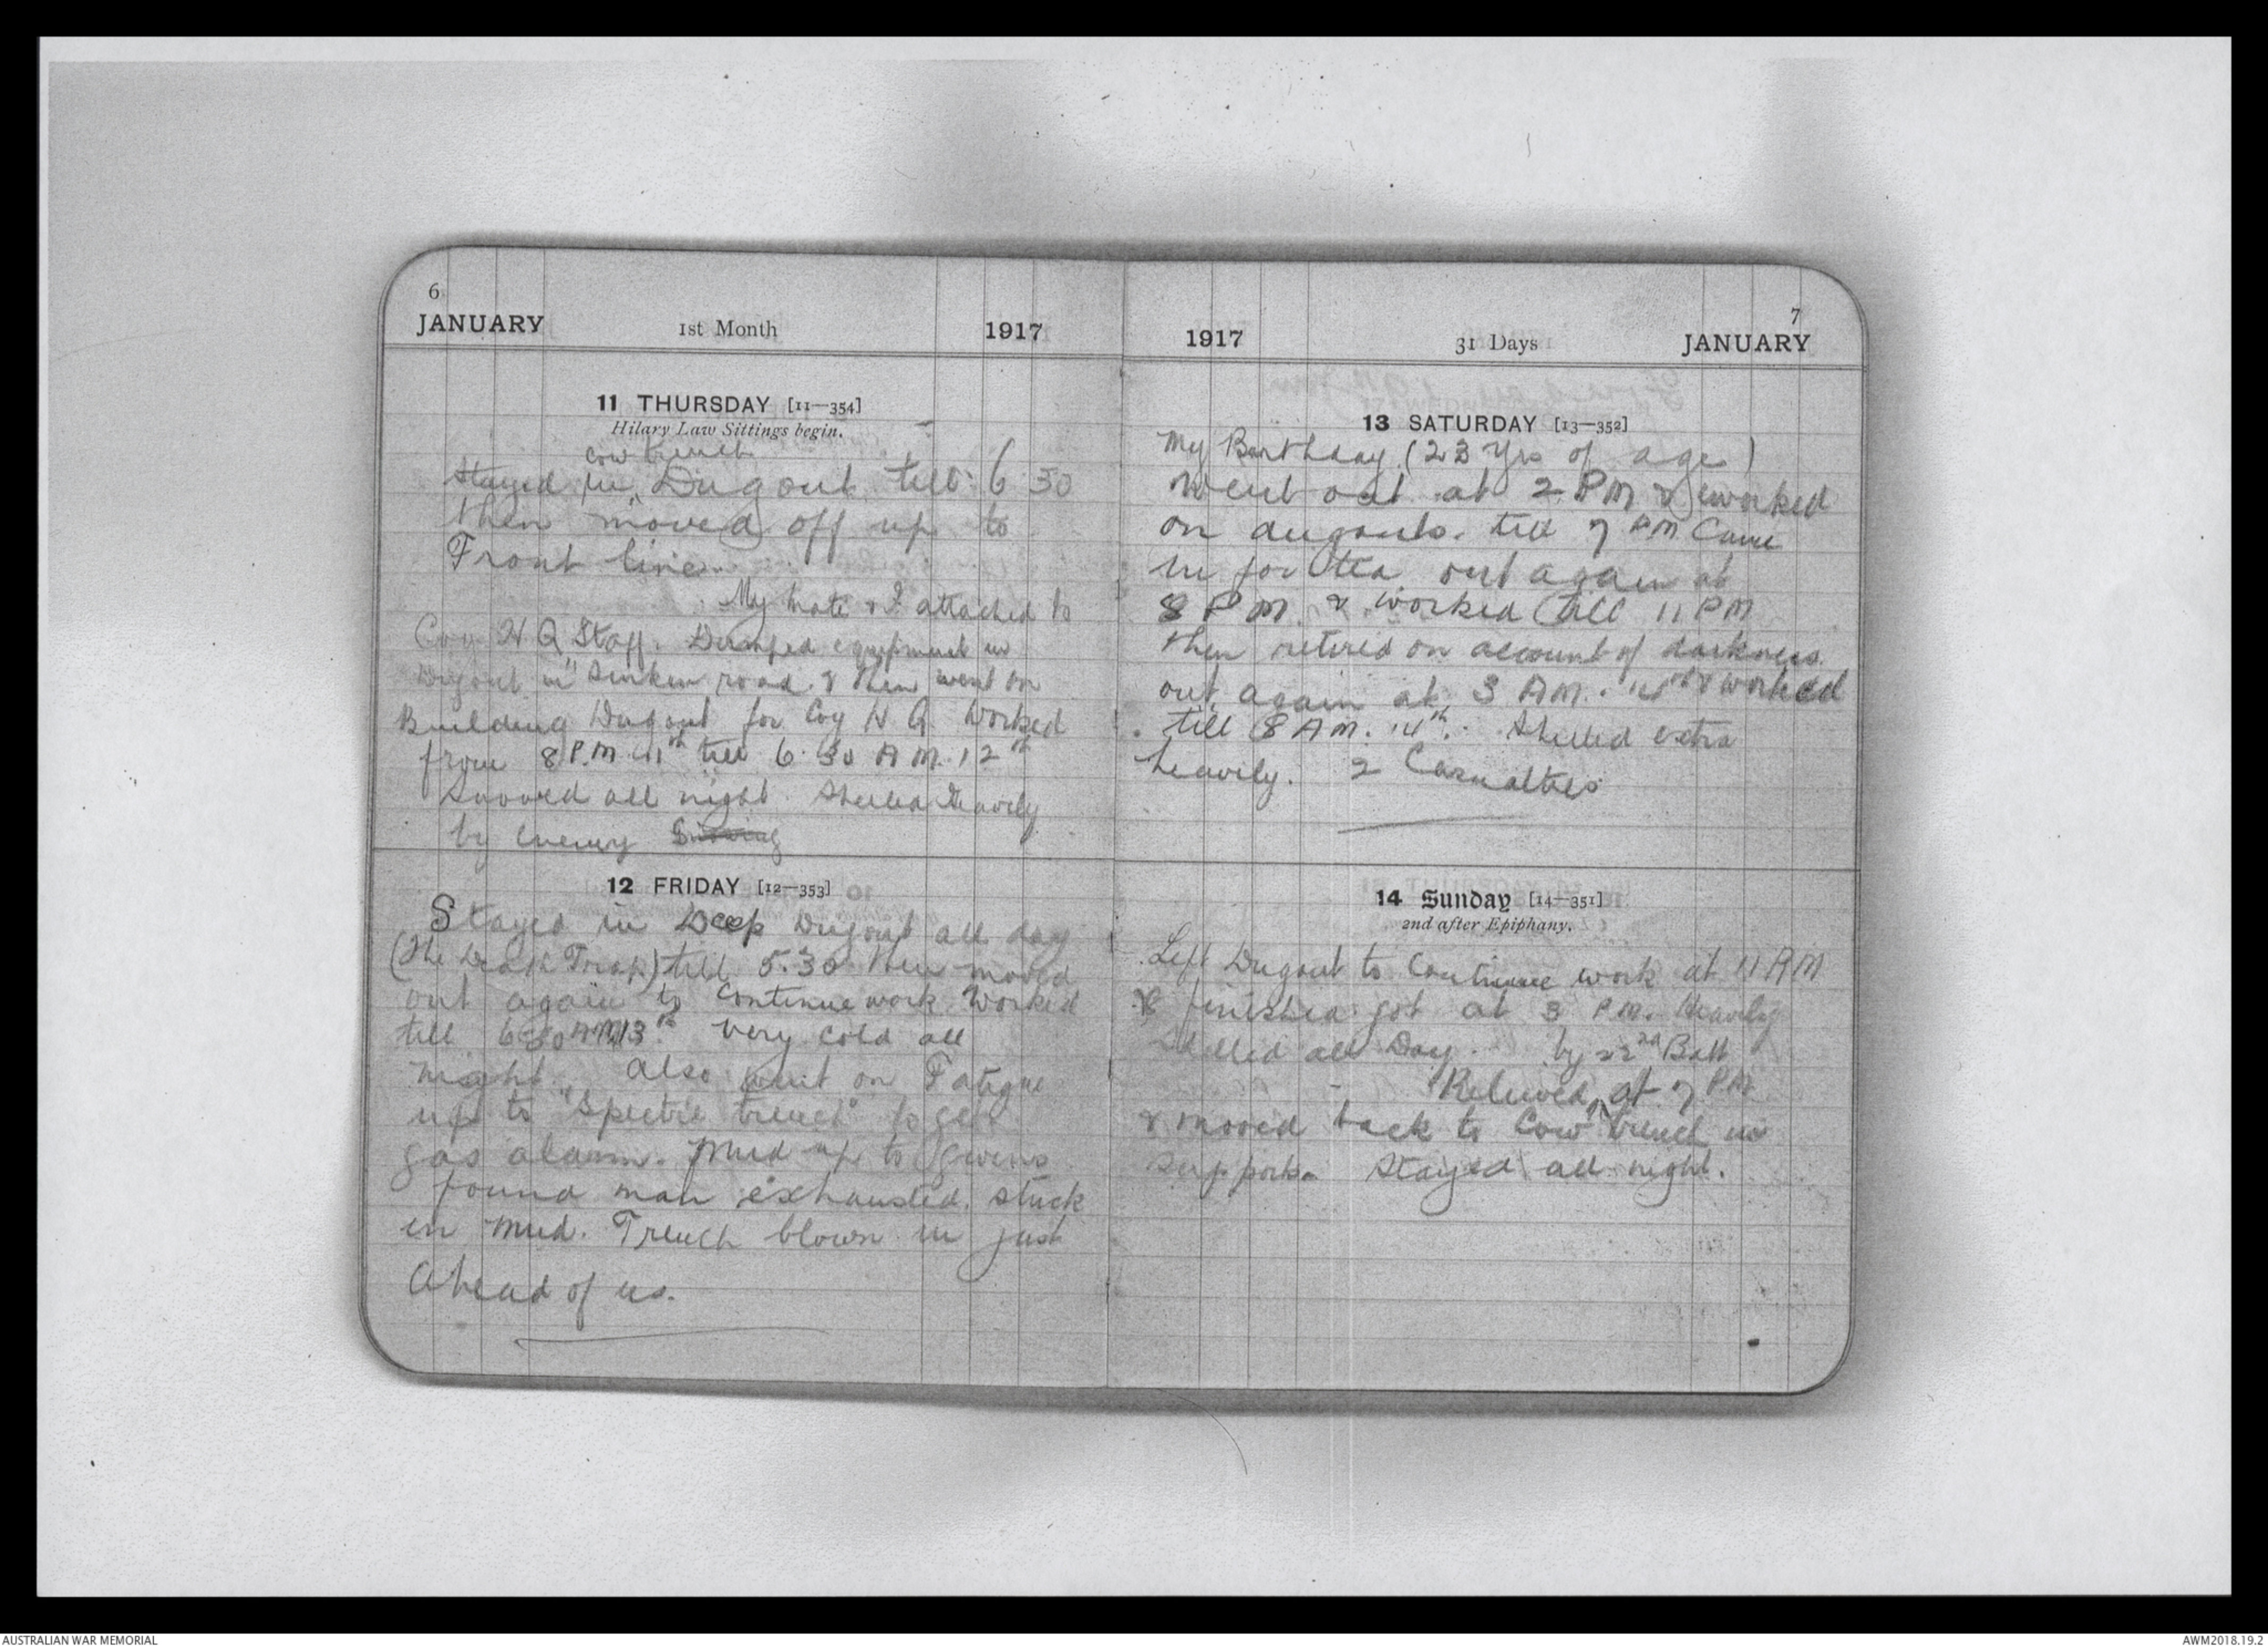 6
JANUARY 1st Month 1917
11 THURSDAY [11—354]
Hilary Law Sittings begin.
cow trench
Stayed in Dugout till 6 30
then moved off up to
Front line.
My mate & I attached to
Coy H Q Staff. Dumped equipment in
Dugout in "Sunken road. & then went on
Building Dugout for Coy H Q. Worked
from 8 P.M. 11th till 6.30 A M. 12th
Snowed all night. Shelled Heavily
by enemy Snowing
12 FRIDAY [12—353]
Stayed in Deep Dugout all day
(The Death Trap) till 5.30 then moved
out again to continue work. Worked
till 6-30 AM 13th. Very cold all
night. Also went on Fatigue
up to "Spectre trench" to get
gas alarm. Mud up to
found man exhausted. stuck
in mud. Trench blown in just
Ahead of us.
7
1917 31 Days JANUARY
13 SATURDAY [13—352]
My Birthday (23 Yrs of age)
Went out at 2 PM & worked
on dugouts. till 7 PM Came
in for tea out again at
8 P M. & worked till 11 PM
then retired on account of darkness.
out again at 3 AM. 14th & worked
till 8 AM. 14th. Shelled extra
heavily. 2 Casualties
14 Sunday [14—351]
2nd after Epiphany.
Left Dugout to Continue work at 11 AM
& finished got at 3 P.M. Heavily
Shelled all Day. by 22nd Batt
Relieved at 7 PM
& moved back to Cow trench in
support. Stayed all night.
AUSTRALIAN WAR MEMORIAL AWM2018.19.2